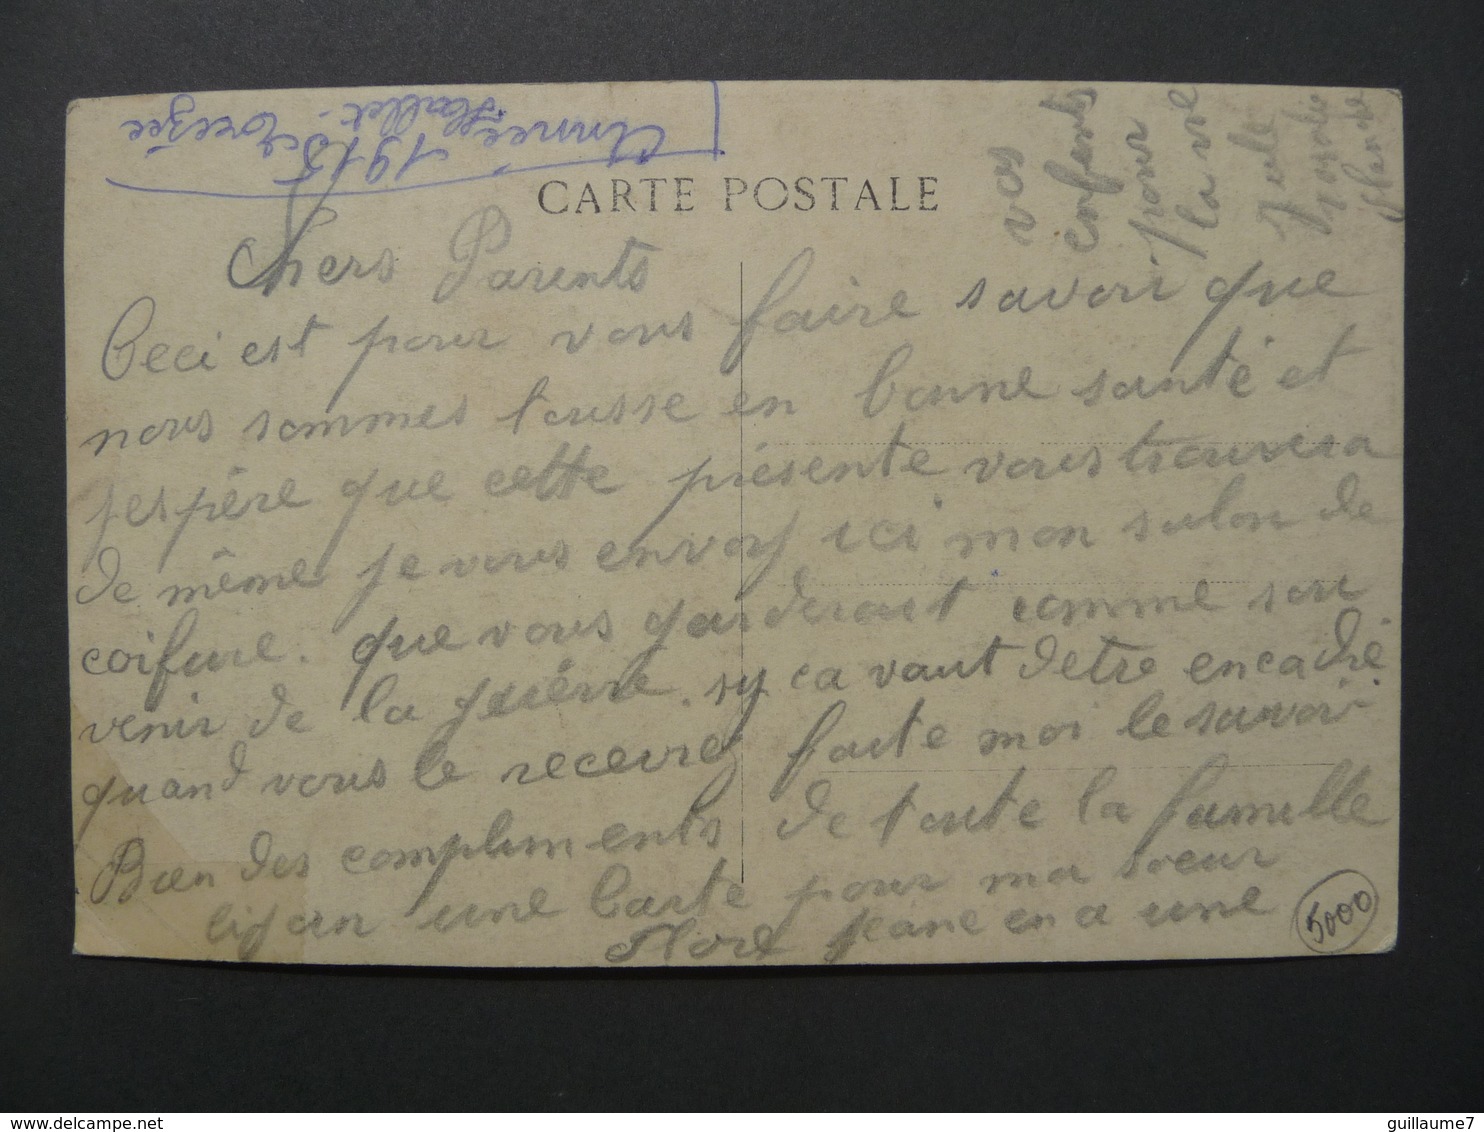 Année 1915
Hallet
Erezée
CARTE POSTALE
vos
enfants
pour
la vie
Jule
Chers Parents
Ceci est pour vous faire savoir que
nous sommes tousse en bonne santé et
jespère que cette présente vous trouvera
de même je vous envoy ici mon salon de
coifure. que vous garderait comme sou
venir de la guèrre. sy ca vaut detre encadré
quand vous le receivrez faite moi le savoir
Bien des compliments de toute la famille
une Carte pour ma soeur
Flore Jeane en a une
5000
guillaume7